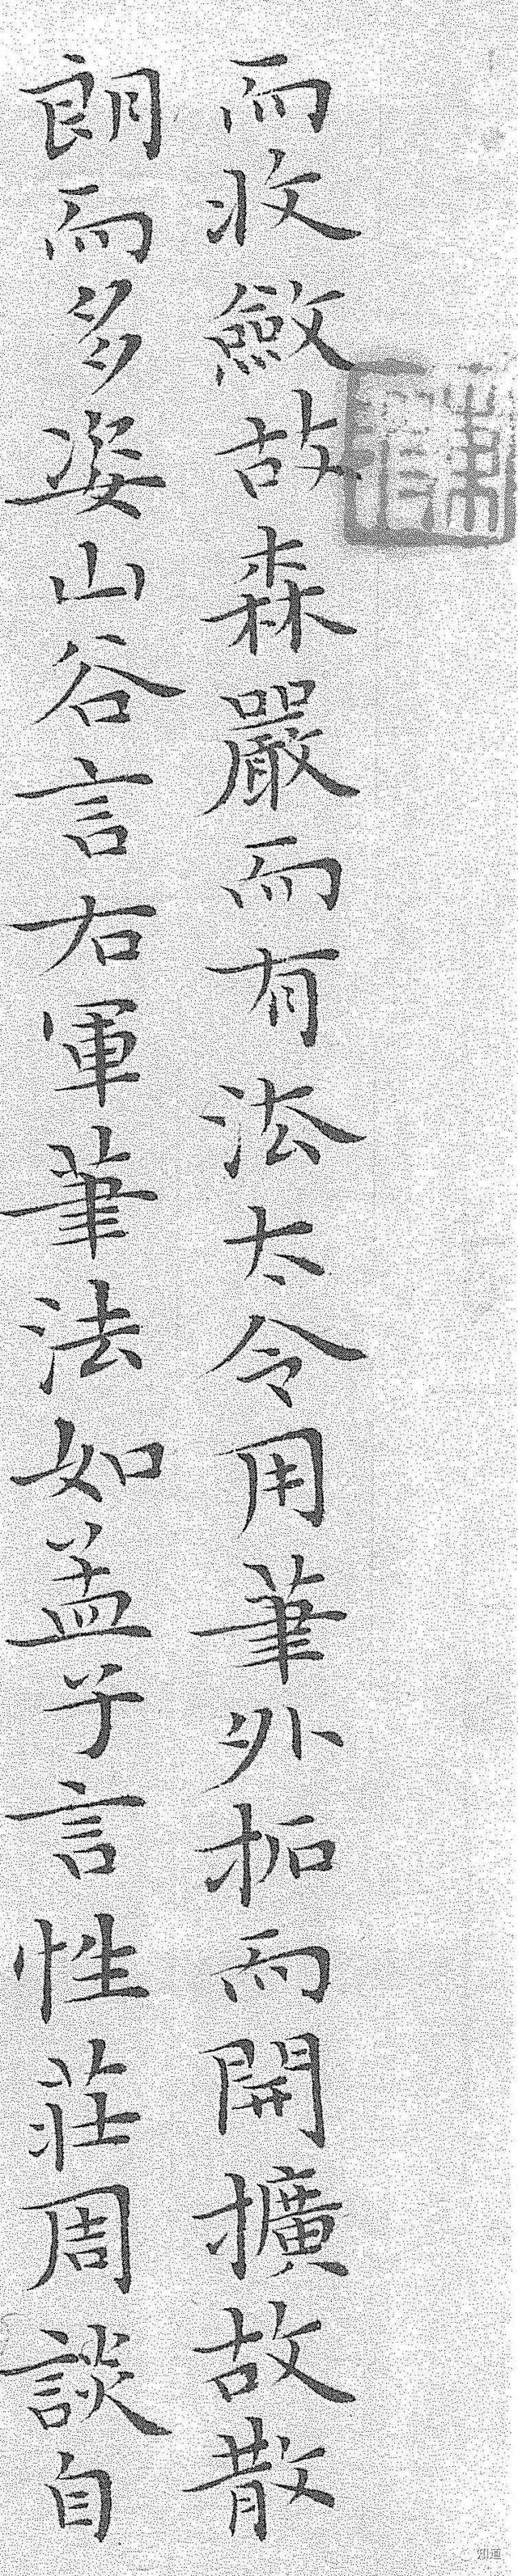 而收斂故森嚴而有法大令用筆外拓而開擴故散
朗而多姿山谷言右軍筆法如孟子言性莊周談自
知道